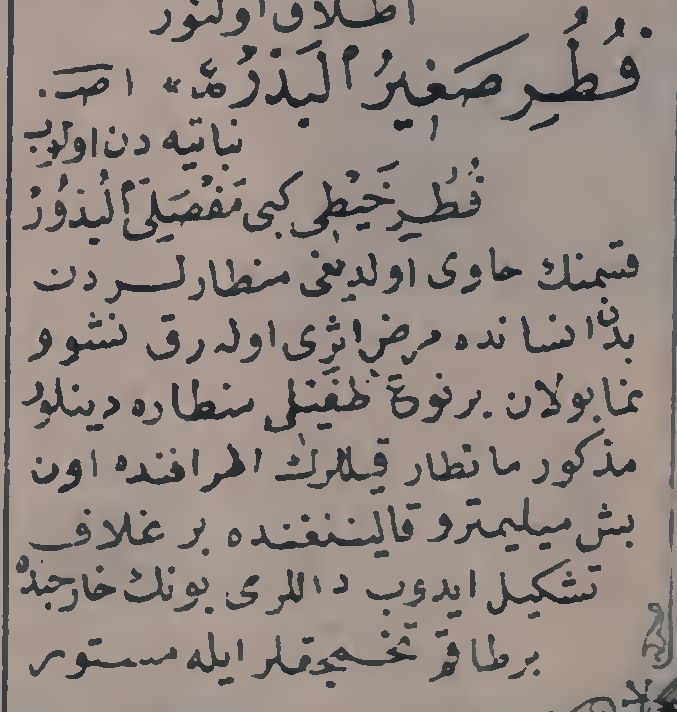 اطلاق اولنور
فُطُرِ صَغِيرُ الْبَذْرُ
نباتیه دن اولوب
فُطُرِ خَيْطِی کبی مَفْصَلِیَ الْبُذُورْ
قسمنك حاوی اولدیغی منطارلردن
بدن انسانده مرض اثری اوله رق نشوو
نما بولان بر نوع طفیلی منطاره دینلور
مذکور مانطار قیللرك اطرافنده اون
بش میلیمترو قالینلغنده بر غلاف
تشکیل ایدوب داللری بونك خارجنده
برطاقم تخمجقلر ایله مستور